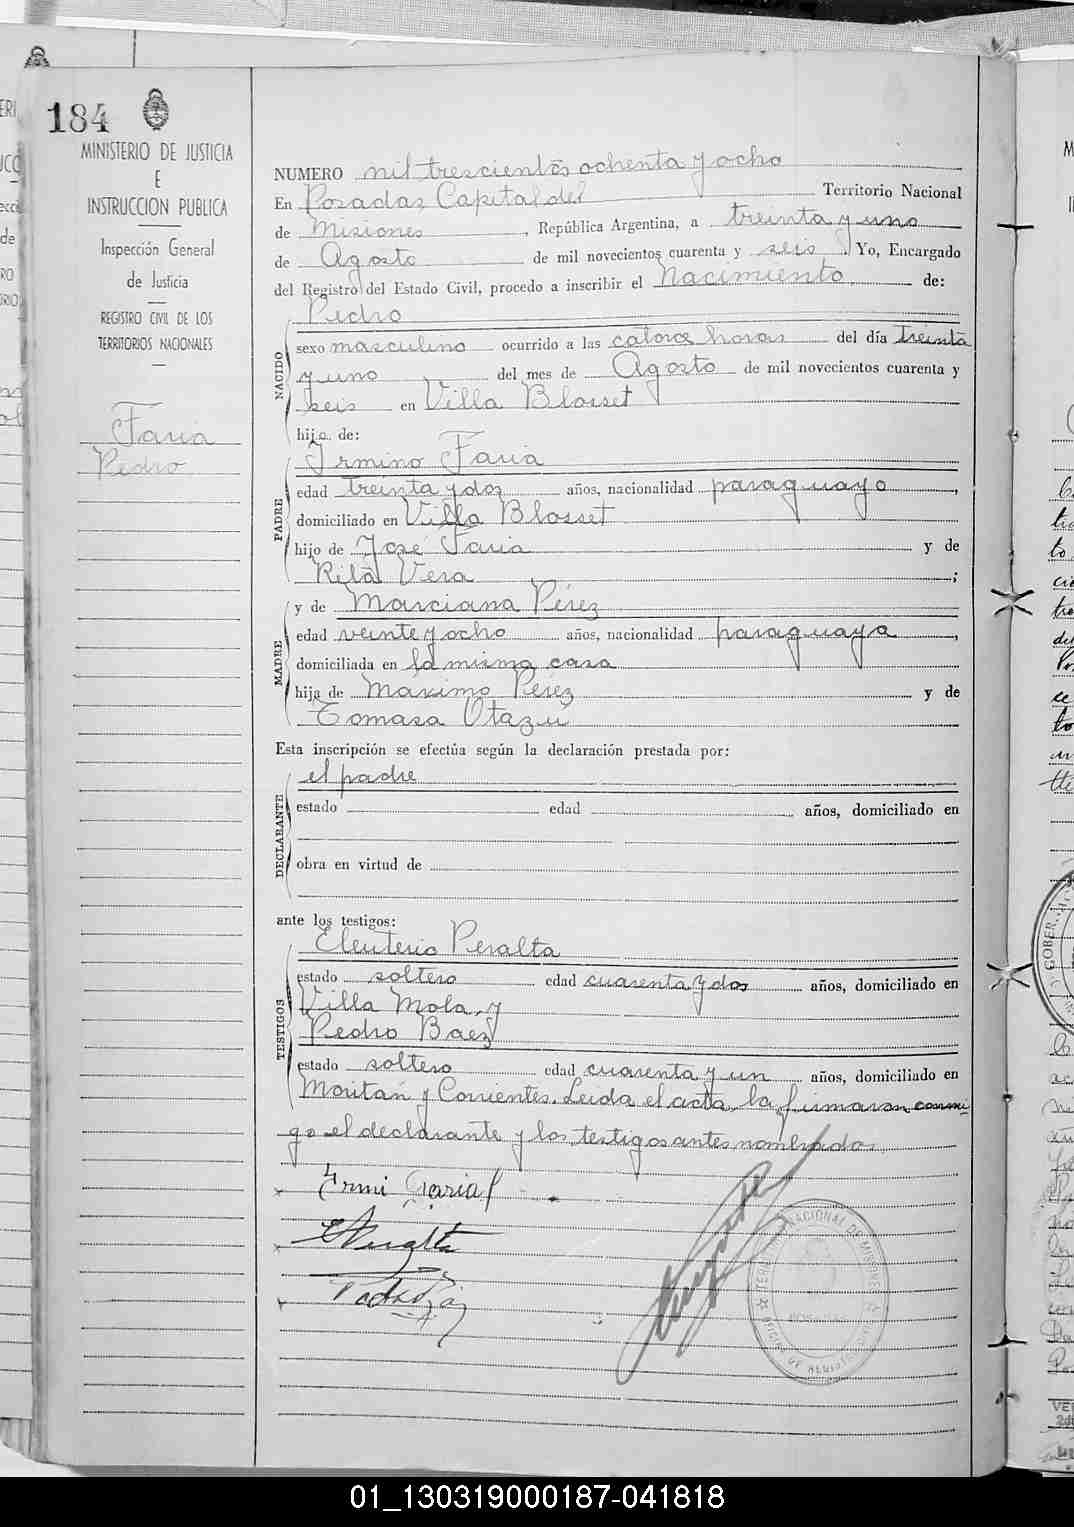 184
MINISTERIO DE JUSTICIA
E
INSTRUCCION PUBLICA
Inspección General
de Justicia
REGISTRO CIVIL DE LOS
TERRITORIOS NACIONALES
Faria
Pedro
NUMERO mil trescientos ochenta y ocho
En Posadas, Capital del Territorio Nacional
de Misiones, República Argentina, a treinta y uno
de Agosto de mil novecientos cuarenta y seis. Yo, Encargado
del Registro del Estado Civil, procedo a inscribir el Nacimiento de:
NACIDO
Pedro
sexo masculino ocurrido a las catorce horas del día treinta
y uno del mes de Agosto de mil novecientos cuarenta y
seis en Villa Blosset
hijo de:
PADRE
Irmino Faria
edad treinta y dos años, nacionalidad paraguayo,
domiciliado en Villa Blosset
hijo de José Faria y de
Rita Vera;
MADRE
y de Marciana Pérez
edad veinte y ocho años, nacionalidad paraguaya,
domiciliada en la misma casa
hija de Maximo Pérez y de
Tomasa Otazú
Esta inscripción se efectúa según la declaración prestada por:
DECLARANTE
el padre
estado edad años, domiciliado en
obra en virtud de
ante los testigos:
TESTIGOS
Eleuterio Peralta
estado soltero edad cuarenta y dos años, domiciliado en
Villa Mola, y
Pedro Baez
estado soltero edad cuarenta y un años, domiciliado en
Moritán y Corrientes. Leida el acta, la firmaron conmi
go el declarante y los testigos antes nombrados.
Irmi Faria
EPeralta
01_130319000187-041818